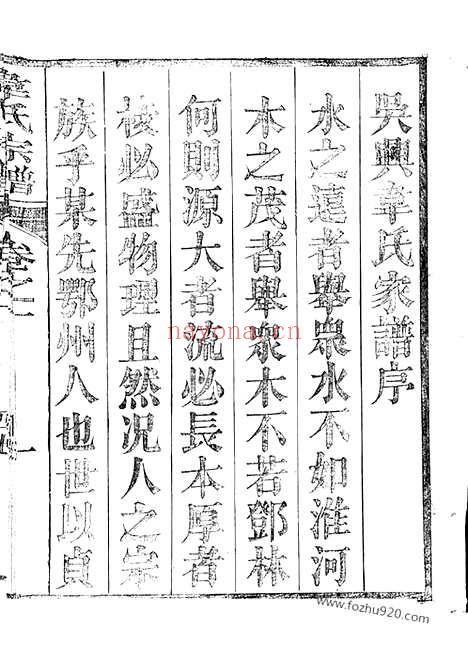 吳興章氏家譜序
水之遠者舉眾水不如淮河
木之茂者舉眾木不若鄧林
何則源大者流必長本厚者
枝必盛物理且然況人之宗
族乎某先鄂州人也世以貞
章氏宗譜 卷之二
nayona.cn
www.fozhu920.com